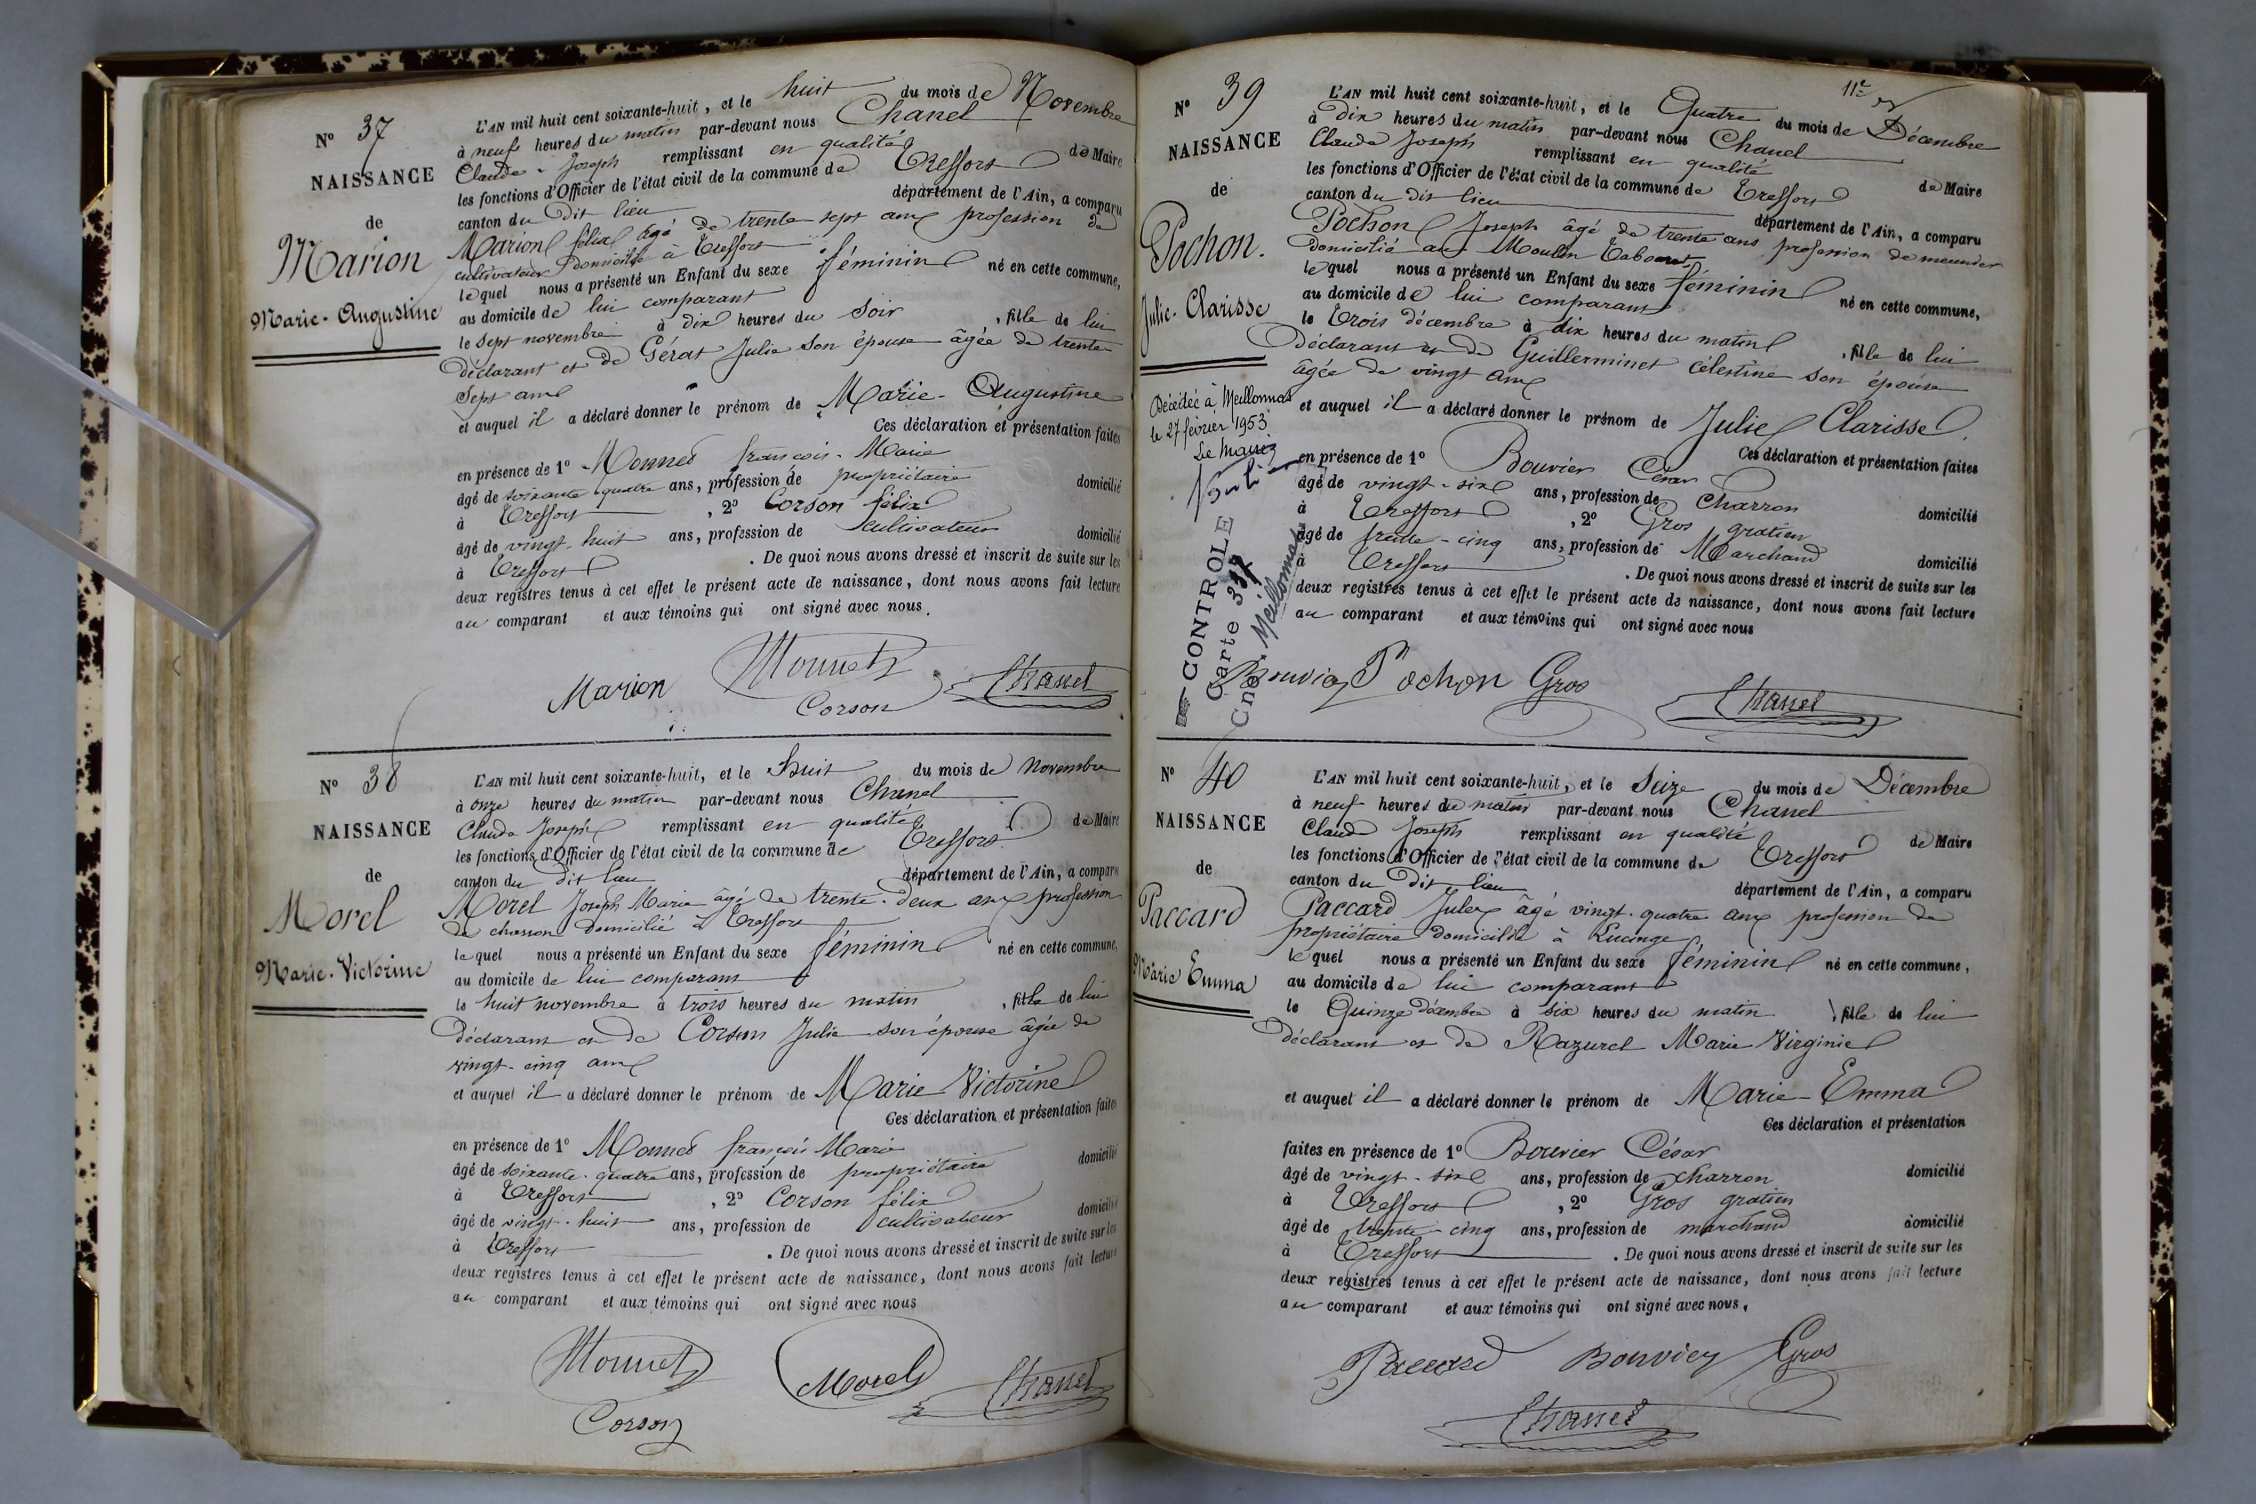 N° 37
NAISSANCE
de
Marion
Marie-Augustine
L'AN mil huit cent soixante-huit, et le huit du mois de Novembre
à neuf heures du matin par-devant nous Chanel
Claude-Joseph remplissant en qualité de Maire
les fonctions d'Officier de l'état civil de la commune de Treffort
canton du dit lieu département de l'Ain, a comparu
Marion félix âgé de trente sept ans profession de
cultivateur domicilié à Treffort
lequel nous a présenté un Enfant du sexe féminin né en cette commune,
au domicile de lui comparant
le sept novembre à dix heures du soir, fille de lui
déclarant et de Gérat Julie son épouse âgée de trente
sept ans
et auquel il a déclaré donner le prénom de Marie-Augustine
Ces déclaration et présentation faites
en présence de 1° Monnet françois-Marie
âgé de soixante-quatre ans, profession de propriétaire domicilié
à Treffort, 2° Corson félix
âgé de vingt-huit ans, profession de cultivateur domicilié
à Treffort. De quoi nous avons dressé et inscrit de suite sur les
deux registres tenus à cet effet le présent acte de naissance, dont nous avons fait lecture
au comparant et aux témoins qui ont signé avec nous.
Marion Monnet Corson Chanel
N° 38
NAISSANCE
de
Morel
Marie-Victorine
L'AN mil huit cent soixante-huit, et le huit du mois de novembre
à onze heures du matin par-devant nous Chanel
Claude Joseph remplissant en qualité de Maire
les fonctions d'Officier de l'état civil de la commune de Treffort
canton du dit lieu département de l'Ain, a comparu
Morel Joseph Marie âgé de trente-deux ans profession
de charron domicilié à Treffort
lequel nous a présenté un Enfant du sexe féminin né en cette commune,
au domicile de lui comparant
le huit novembre à trois heures du matin, fille de lui
déclarant et de Corson Julie son épouse âgée de
vingt-cinq ans
et auquel il a déclaré donner le prénom de Marie Victorine
Ces déclaration et présentation faites
en présence de 1° Monnet françois Marie
âgé de soixante-quatre ans, profession de propriétaire domicilié
à Treffort, 2° Corson félix
âgé de vingt-huit ans, profession de cultivateur domicilié
à Treffort. De quoi nous avons dressé et inscrit de suite sur les
deux registres tenus à cet effet le présent acte de naissance, dont nous avons fait lecture
au comparant et aux témoins qui ont signé avec nous
Monnet Morel Chanel
Corson
11e
N° 39
NAISSANCE
de
Pochon.
Julie-Clarisse
Décédée à Meillonnas
le 27 février 1953
Le Maire
CONTROLE
Carte 337
Cne Meillonnas
L'AN mil huit cent soixante-huit, et le Quatre du mois de Décembre
à dix heures du matin par-devant nous Chanel
Claude Joseph remplissant en qualité de Maire
les fonctions d'Officier de l'état civil de la commune de Treffort
canton du dit lieu département de l'Ain, a comparu
Pochon Joseph âgé de trente ans profession de meunier
domicilié au Moulin
lequel nous a présenté un Enfant du sexe féminin né en cette commune,
au domicile de lui comparant
le trois décembre à dix heures du matin, fille de lui
déclarant et de Guillerminet célestine son épouse
âgée de vingt ans
et auquel il a déclaré donner le prénom de Julie Clarisse.
Ces déclaration et présentation faites
en présence de 1° Bouvier César
âgé de vingt-six ans, profession de Charron domicilié
à Treffort, 2° Gros gratien
âgé de trente-cinq ans, profession de Marchand domicilié
à Treffort. De quoi nous avons dressé et inscrit de suite sur les
deux registres tenus à cet effet le présent acte de naissance, dont nous avons fait lecture
au comparant et aux témoins qui ont signé avec nous
Bouvier Pochon Gros Chanel
N° 40
NAISSANCE
de
Paccard
Marie Emma
L'AN mil huit cent soixante-huit, et le Seize du mois de Décembre
à neuf heures du matin par-devant nous Chanel
Claude Joseph remplissant en qualité de Maire
les fonctions d'Officier de l'état civil de la commune de Treffort
canton du dit lieu département de l'Ain, a comparu
Paccard Jules âgé vingt-quatre ans profession de
propriétaire domicilié à Lucinge
lequel nous a présenté un Enfant du sexe féminin né en cette commune,
au domicile de lui comparant
le Quinze décembre à six heures du matin, fille de lui
déclarant et de Razurel Marie Virginie
et auquel il a déclaré donner le prénom de Marie-Emma
Ces déclaration et présentation
faites en présence de 1° Bouvier César
âgé de vingt-six ans, profession de charron domicilié
à Treffort, 2° Gros gratien
âgé de trente-cinq ans, profession de marchand domicilié
à Treffort. De quoi nous avons dressé et inscrit de suite sur les
deux registres tenus à cet effet le présent acte de naissance, dont nous avons fait lecture
au comparant et aux témoins qui ont signé avec nous.
Paccard Bouvier Gros
Chanel